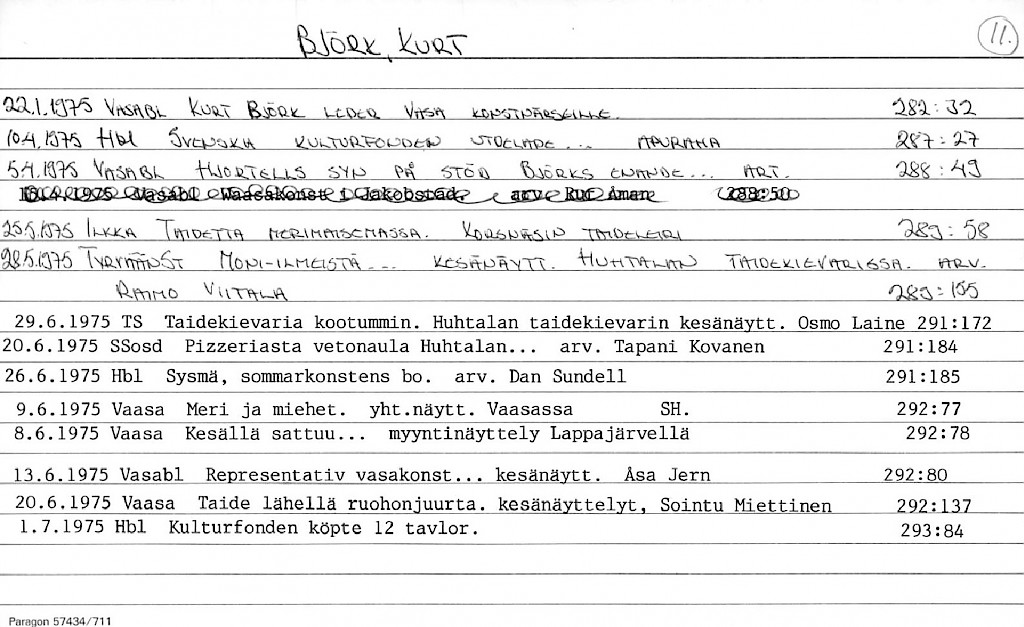 BJÖRK, KURT
11.
22.1.1975 VASABL KURT BJÖRK LEDER VASA KONSTNÄRSGILLE. 282:32
10.4.1975 Hbl SVENSKA KULTURFONDEN UTDELADE... APURAHA 287:27
5.4.1975 VASABL HJORTELLS SYN PÅ STÖD BJÖRKS ENANDE... ART. 288:49
18.4.1975 Vasabl Waasakonst i Jakobstad, arv. RUC Åman 288:50
25.5.1975 ILKKA TAIDETTA MERIMAISEMASSA. KORSNÄSIN TAIDELEIRI 289:58
28.5.1975 TYRVÄÄNST MONI-ILMEISTÄ... KESÄNÄYTT. HUHTALAN TAIDEKIEVARISSA. ARV.
RAIMO VIITALA 289:155
29.6.1975 TS Taidekievaria kootummin. Huhtalan taidekievarin kesänäytt. Osmo Laine 291:172
20.6.1975 SSosd Pizzeriasta vetonaula Huhtalan... arv. Tapani Kovanen 291:184
26.6.1975 Hbl Sysmä, sommarkonstens bo. arv. Dan Sundell 291:185
9.6.1975 Vaasa Meri ja miehet. yht.näytt. Vaasassa SH. 292:77
8.6.1975 Vaasa Kesällä sattuu... myyntinäyttely Lappajärvellä 292:78
13.6.1975 Vasabl Representativ vasakonst... kesänäytt. Åsa Jern 292:80
20.6.1975 Vaasa Taide lähellä ruohonjuurta. kesänäyttelyt, Sointu Miettinen 292:137
1.7.1975 Hbl Kulturfonden köpte 12 tavlor. 293:84
Paragon 57434/711